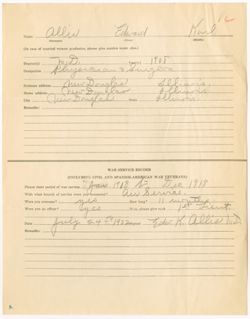 Name Allis Edward Karl
(In case of married women graduates, please give maiden name.)
Degree(s) M.D. 1905
Occupation Physician & Surgeon
Business address New Douglas Illinois
Home address New Douglas Illinois
City New Douglas Illinois
WAR SERVICE RECORD
(INCLUDING CIVIL AND SPANISH-AMERICAN WAR VETERANS)
Please state period of war service 1918 to Dec 1918
With what branch of service were you connected? Air Service
Were you overseas? yes How long? 11 months
Were you an officer? yes rank 1st Lieut.
Date July 24th 1932 Edw. K. Allis M.D.